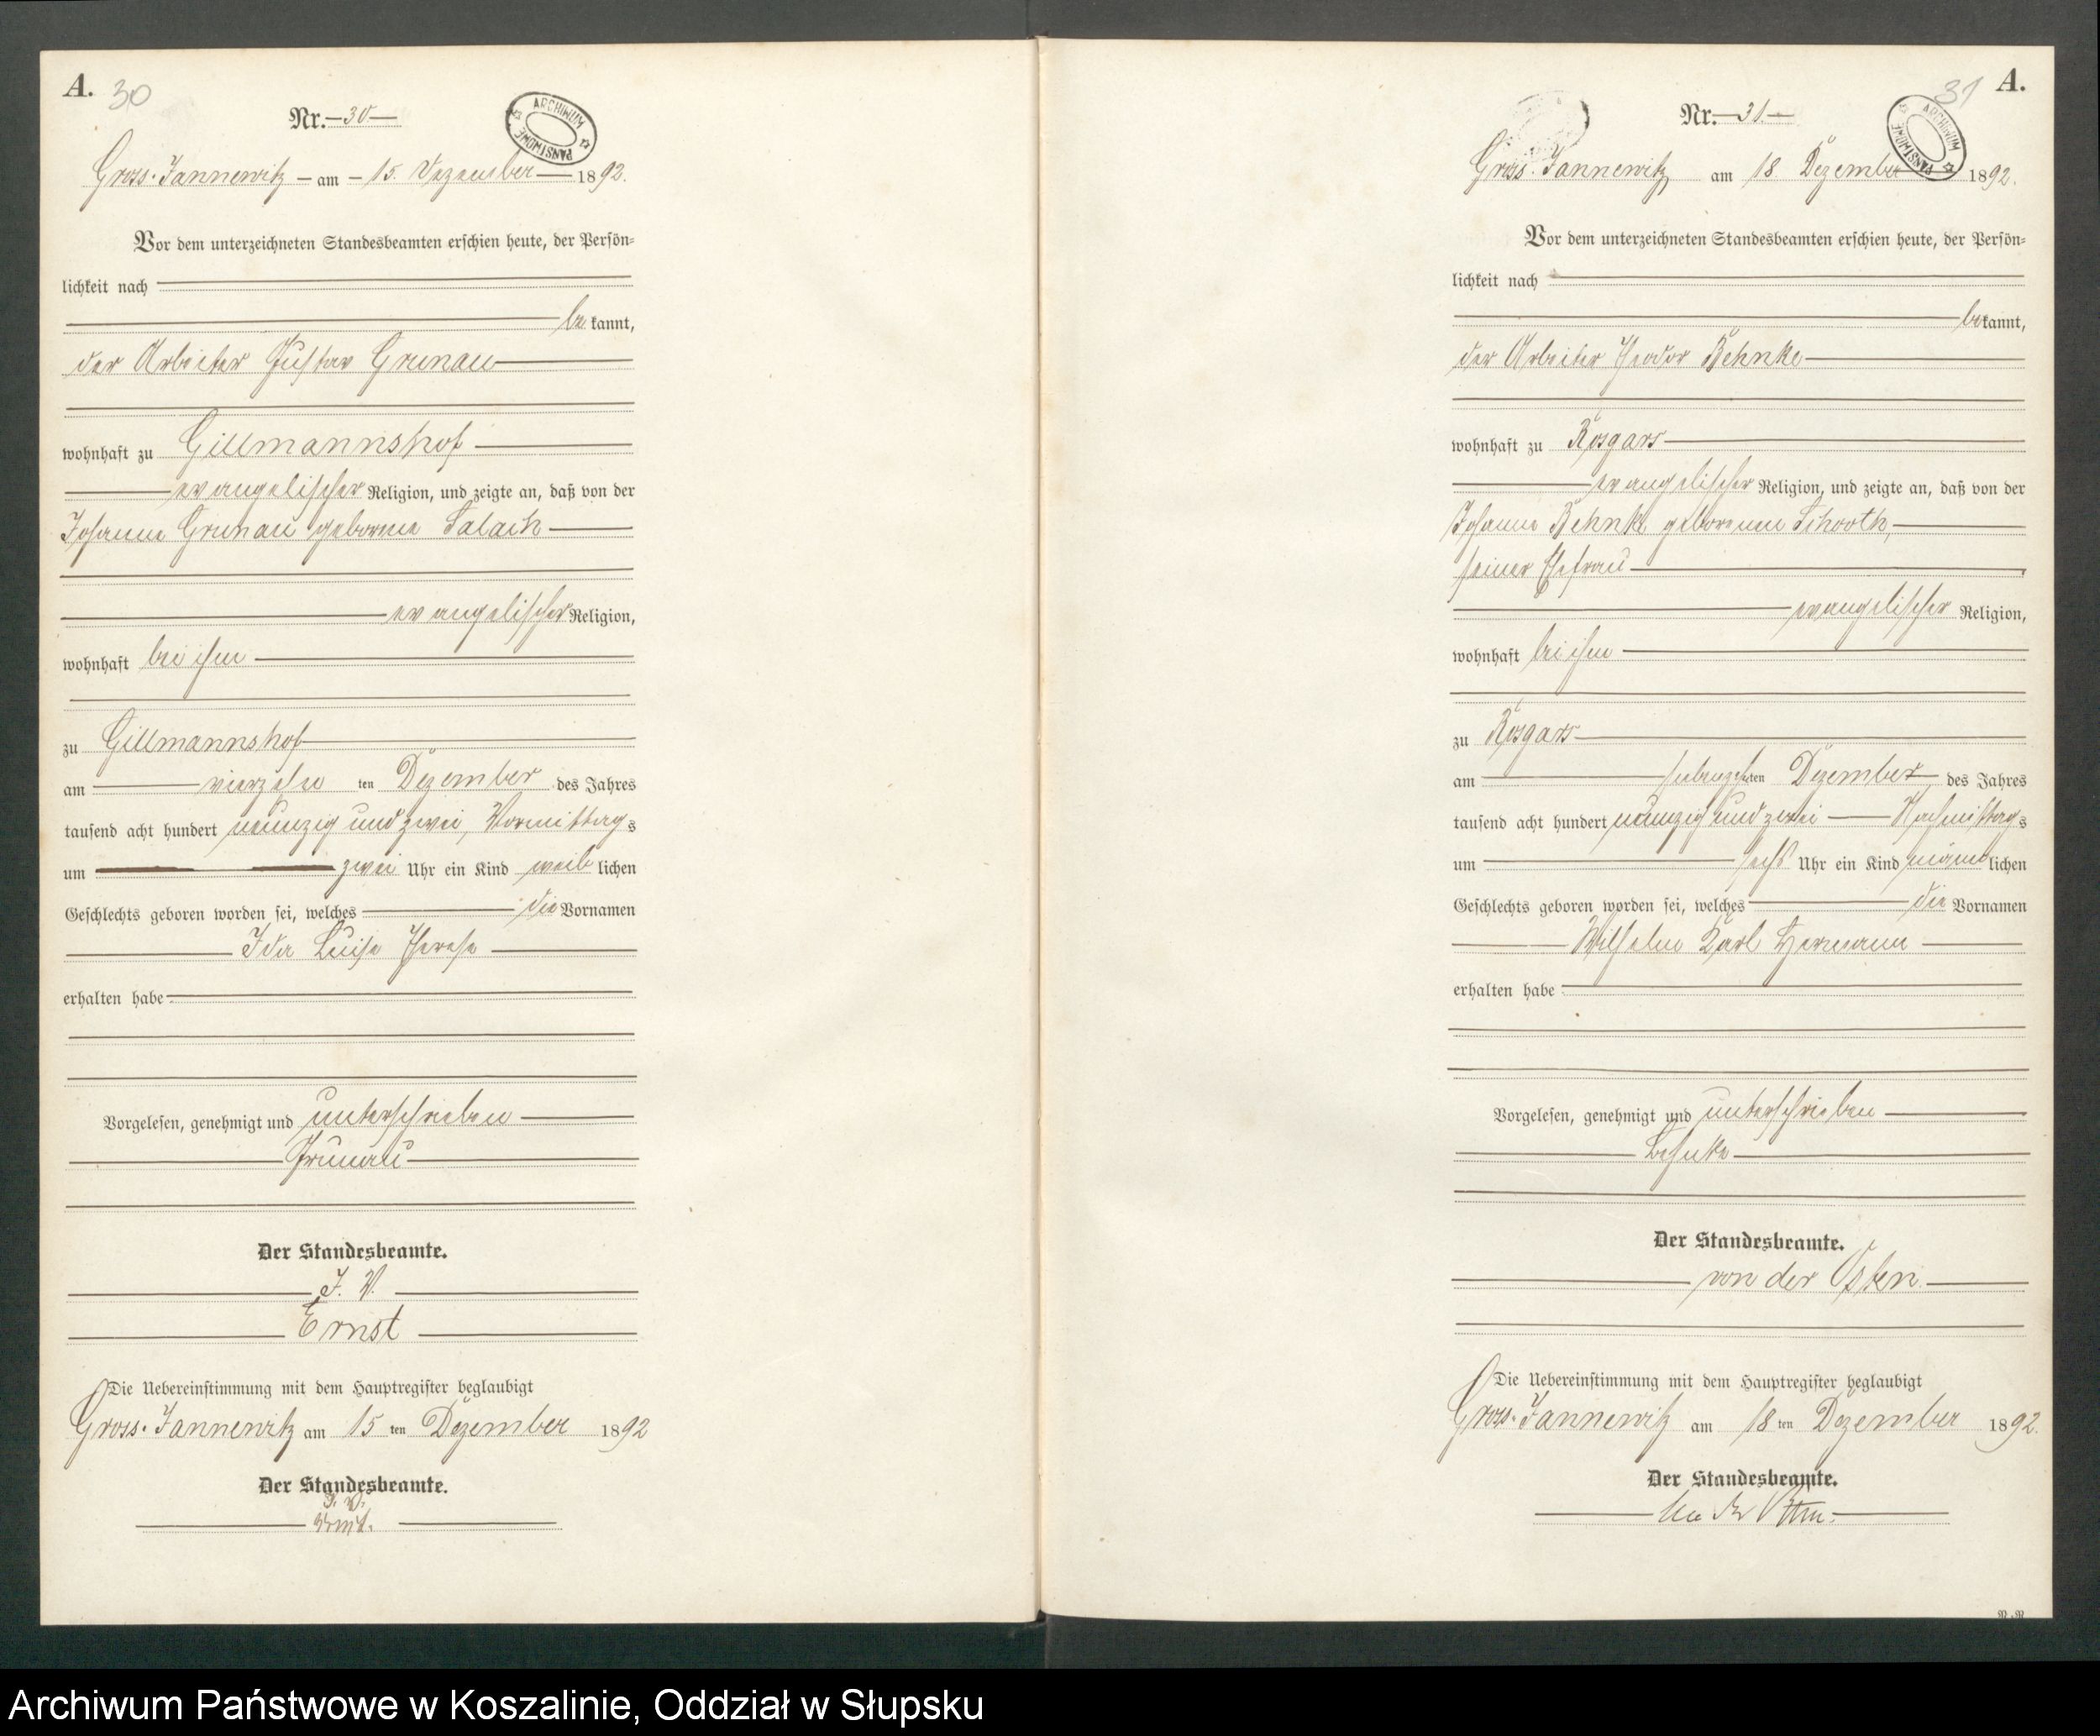 A. 30
Nr. 30
ARCHIWUM PAŃSTWOWE
Gross-Jannewitz am 15. Dezember 1892.
Vor dem unterzeichneten Standesbeamten erschien heute, der Persön-
lichkeit nach
bekannt,
der Arbeiter Gustav Grunau
wohnhaft zu Gillmannshof
evangelischer Religion, und zeigte an, daß von der
Johanne Grunau geborene
evangelischer Religion,
wohnhaft bei ihm
zu Gillmannshof
am vierzehn ten Dezember des Jahres
tausend acht hundert neunzig und zwei, Vormittags
um zwei Uhr ein Kind weiblichen
Geschlechts geboren worden sei, welches die Vornamen
Ida Luise Therese
erhalten habe
Vorgelesen, genehmigt und unterschrieben
Grunau
Der Standesbeamte.
J. V.
Ernst
Die Uebereinstimmung mit dem Hauptregister beglaubigt
Gross-Jannewitz am 15 ten Dezember 1892
Der Standesbeamte.
J. V.
Ernst.
31 A.
Nr. 31.
ARCHIWUM PAŃSTWOWE
Gross-Jannewitz am 18 Dezember 1892.
Vor dem unterzeichneten Standesbeamten erschien heute, der Persön-
lichkeit nach
bekannt,
der Arbeiter Theodor Behnke
wohnhaft zu Rosgars
evangelischer Religion, und zeigte an, daß von der
Johanne Behnke geborenen
seiner Ehefrau
evangelischer Religion,
wohnhaft bei ihm
zu Rosgars
am siebenzehnten Dezember des Jahres
tausend acht hundert neunzig und zwei Nachmittags
um sechs Uhr ein Kind männlichen
Geschlechts geboren worden sei, welches die Vornamen
Wilhelm Karl Hermann
erhalten habe
Vorgelesen, genehmigt und unterschrieben
Behnke
Der Standesbeamte.
von der Osten.
Die Uebereinstimmung mit dem Hauptregister beglaubigt
Gross-Jannewitz am 18 ten Dezember 1892.
Der Standesbeamte.
von der Osten.
Archiwum Państwowe w Koszalinie, Oddział w Słupsku